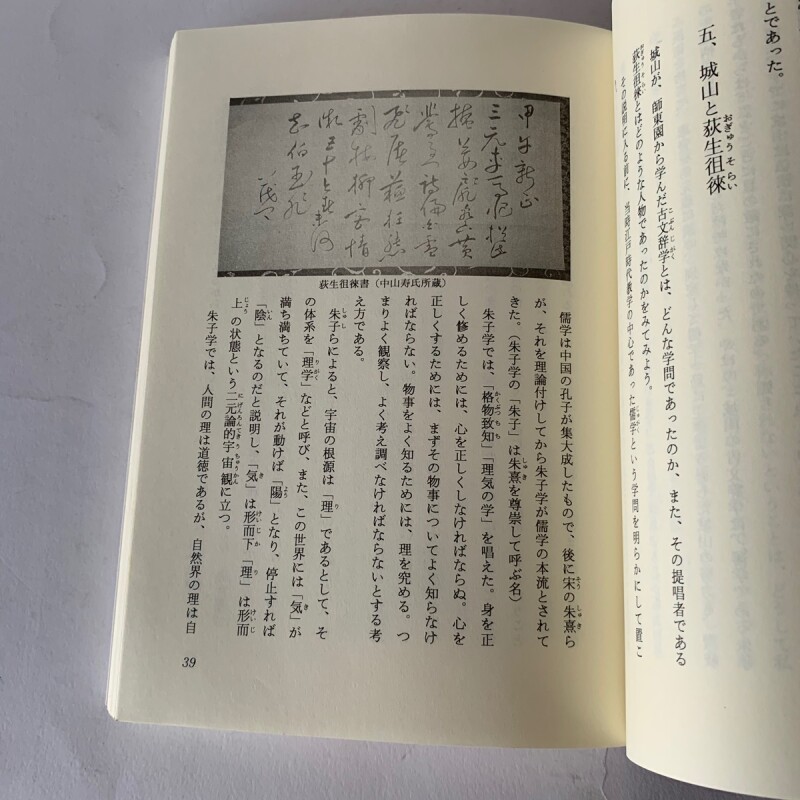 とであった。
五、城山と荻生徂徠
おぎゅうそらい
城山が、師東園から学んだ古文辞学とは、どんな学問であったのか、また、その提唱者である
こぶんじがく
荻生徂徠とはどのような人物であったのかをみてみよう。
その説明に入る前に、当時江戸時代教学の中心であった儒学という学問を明らかにして置こ
荻生徂徠書(中山寿氏所蔵)
儒学は中国の孔子が集大成したもので、後に宋の朱熹ら
しゅき
が、それを理論付けしてから朱子学が儒学の本流とされて
きた。(朱子学の「朱子」は朱熹を尊崇して呼ぶ名)
しゅき
朱子学では、「格物致知」「理気の学」を唱えた。身を正
かくぶつちち
しく修めるためには、心を正しくしなければならぬ。心を
正しくするためには、まずその物事についてよく知らなけ
ればならない。物事をよく知るためには、理を究める。つ
まりよく観察し、よく考え調べなければならないとする考
え方である。
朱子らによると、宇宙の根源は「理」であるとして、そ
しゅし
り
の体系を「理学」などと呼び、また、この世界には「気」が
りがく
き
満ち満ちていて、それが動けば「陽」となり、停止すれば
よう
「陰」となるのだと説明し、「気」は形而下「理」は形而
いん
き
けいじか
り
けいじ
上の状態という二元論的宇宙観に立つ。
じょう
にげんろんてきうちゅうかん
朱子学では、人間の理は道徳であるが、自然界の理は自
39